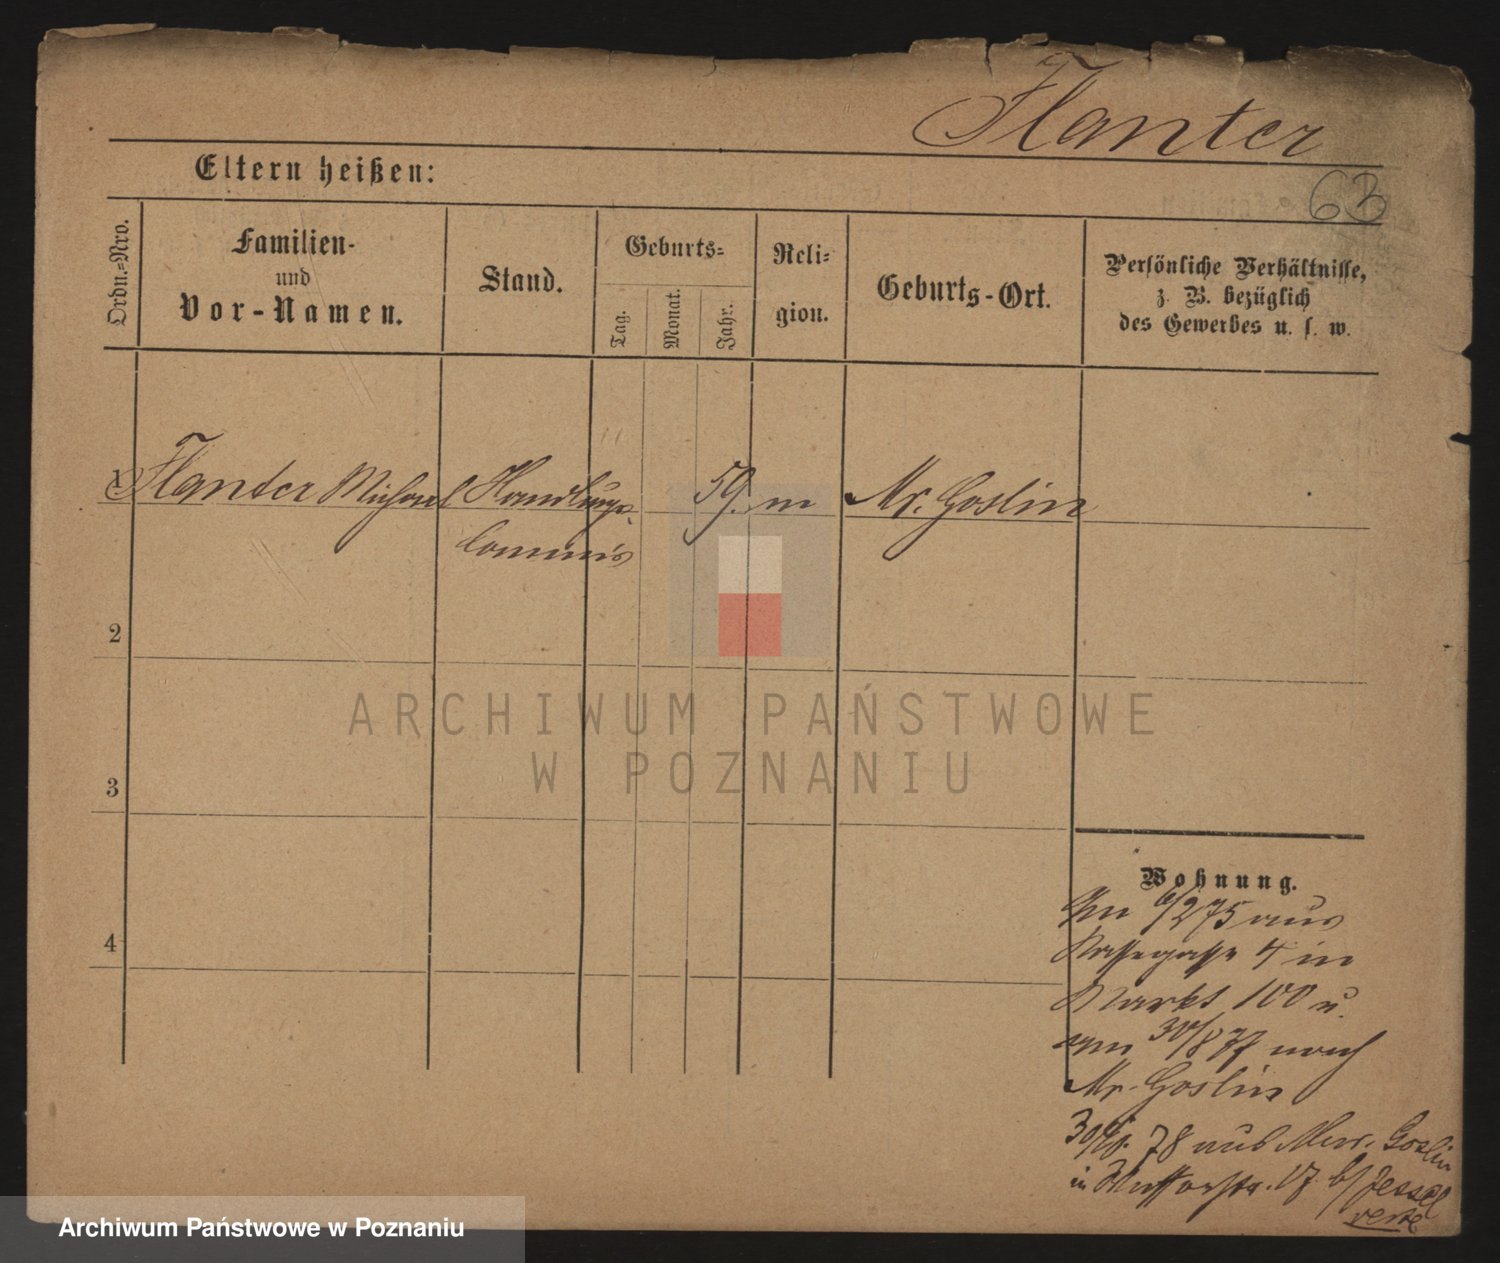 Flanter
Eltern heißen:
63
Ordn.=Nro.
Familien-
und
Vor-Namen.
Stand.
Geburts=
Tag.
Monat.
Jahr.
Reli=
gion.
Geburts-Ort.
Persönliche Verhältnisse,
z. B. bezüglich
des Gewerbes u. s. w.
1 Flanter Michael Handlungs 59. m Mr. Goslin
Commis
2
3
4
ARCHIWUM PAŃSTWOWE
W POZNANIU
Wohnung.
6/2 75 aus
4 in
Markt 100 u.
am 30/8 77 nach
Mr. Goslin
78 aus Mur. Goslin
in 17 b/ Jessel
verte
Archiwum Państwowe w Poznaniu